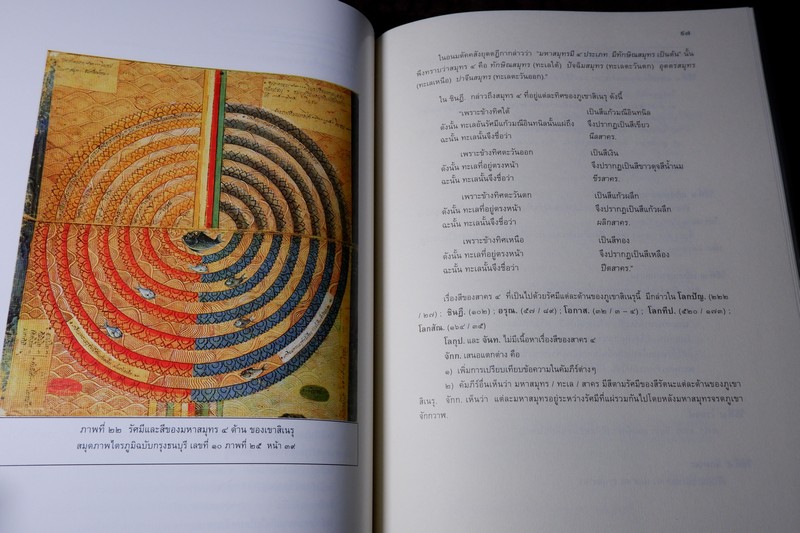 ภาพที่ ๒๒ รัศมีและสีของมหาสมุทร ๔ ด้าน ของเขาสิเนรุ
สมุดภาพไตรภูมิฉบับกรุงธนบุรี เลขที่ ๑๐ ภาพที่ ๒๕ หน้า ๓๙
๕๗
ในอนมตัคคสังยุตตฎีกากล่าวว่า "มหาสมุทรมี ๔ ประเภท มีทักษิณสมุทร เป็นต้น" นั้น
พึงทราบว่าสมุทร ๔ คือ ทักษิณสมุทร (ทะเลใต้) ปัจฉิมสมุทร (ทะเลตะวันตก) อุตตรสมุทร
(ทะเลเหนือ) ปาจีนสมุทร (ทะเลตะวันออก)."
ใน ชินฎี. กล่าวถึงสมุทร ๔ ที่อยู่แต่ละทิศของภูเขาสิเนรุ ดังนี้
"เพราะข้างทิศใต้ เป็นสีแก้วมณีอินทนิล
ดังนั้น ทะเลอันรัศมีแก้วมณีอินทนิลนั้นแผ่ถึง จึงปรากฏเป็นสีเขียว
ฉะนั้น ทะเลนั้นจึงชื่อว่า นีลสาคร.
เพราะข้างทิศตะวันออก เป็นสีเงิน
ดังนั้น ทะเลที่อยู่ตรงหน้า จึงปรากฏเป็นสีขาวดุจสีน้ำนม
ฉะนั้น ทะเลนั้นจึงชื่อว่า ขีรสาคร.
เพราะข้างทิศตะวันตก เป็นสีแก้วผลึก
ดังนั้น ทะเลที่อยู่ตรงหน้า จึงปรากฏเป็นสีแก้วผลึก
ฉะนั้น ทะเลนั้นจึงชื่อว่า ผลิกสาคร.
เพราะข้างทิศเหนือ เป็นสีทอง
ดังนั้น ทะเลที่อยู่ตรงหน้า จึงปรากฏเป็นสีเหลือง
ฉะนั้น ทะเลนั้นจึงชื่อว่า ปีตสาคร."
เรื่องสีของสาคร ๔ ที่เป็นไปด้วยรัศมีแต่ละด้านของภูเขาสิเนรุนี้ มีกล่าวใน โลกปัญ. (๒๒๒
/ ๒๗) ; ชินฎี. (๑๐๒) ; อรุณ. (๕๗ / ๘๔) ; โอกาส. (๓๒ / ๓ – ๔) ; โลกทีป. (๕๒๐ / ๑๗๓) ;
โลกสัณ. (๑๖๔ / ๓๕)
โลกุป. และ จันท. ไม่มีเนื้อหาเรื่องสีของสาคร ๔
จักก. เสนอแตกต่าง คือ
๑) เพิ่มการเปรียบเทียบข้อความในคัมภีร์ต่างๆ
๒) คัมภีร์อื่นเห็นว่า มหาสมุทร / ทะเล / สาคร มีสีตามรัศมีของสีรัตนะแต่ละด้านของภูเขา
สิเนรุ. จักก. เห็นว่า แต่ละมหาสมุทรอยู่ระหว่างรัศมีที่แผ่รวมกันไปโดยหลังมหาสมุทรจรดภูเขา
จักกวาฬ.